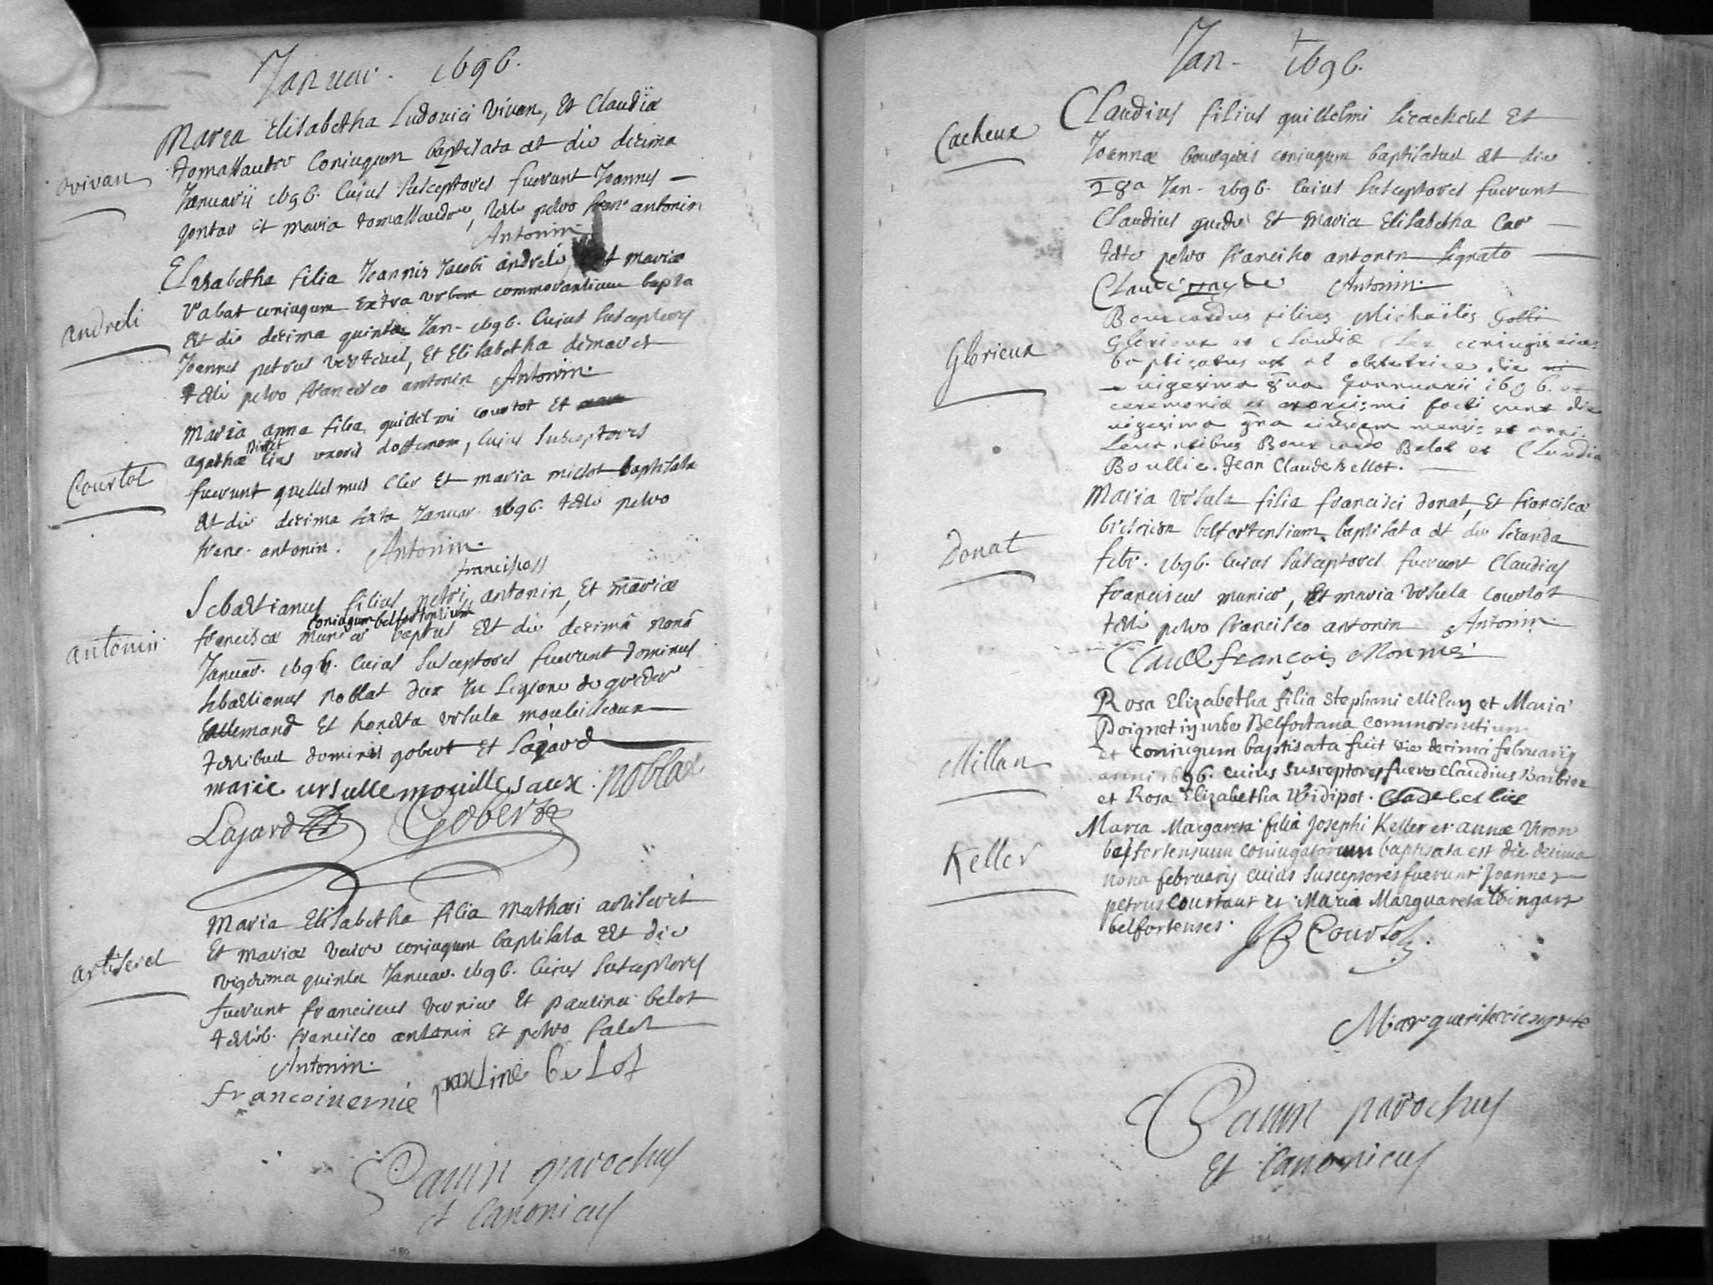 Januar. 1696.
Maria Elisabetha Ludovici vivan, Et Claudiæ
tomassautte Coniugum baptisata est die decima
vivan
Januarij 1696. Cuius Susceptores fuerunt Joannes
et maria tomassaude, teste petro franc antonin
Antonin.
Elisabetha filia Joannis Jacobi andreli, et mariæ
vabat coniugum Extra urbem commorantium bapta
andreli
Est die decima quinta Jan- 1696. Cuius Susceptores
Joannes petrus, Et Elisabetha
teste petro francisco antonin Antonin.
Maria anna filia guillelmi courtot Et
agathæ uxoris, Cuius Susceptores
Courtot
fuerunt guillelmus Cler Et maria miclot baptisata
Est die decima sexta Januar. 1696. teste petro
franc. antonin. Antonin.
francisci
Sebastianus filius petri antonin, Et mariæ
coniugum belfortensium
franciscæ munier baptus Est die decimâ nonâ
antonin
Januar. 1696. Cuius Susceptores fuerunt dominus
sebastianus noblat dux in Legione de
Allemand Et honesta ursula mouillesaux
testibus dominis gobert Et Lajard
marie ursulle mouillesaux. noblat
Lajard Gobert
Maria Elisabetha filia Mathæi artiseret
Et mariæ coniugum baptisata Est die
artiseret
vigesima quinta Januar. 1696. Cuius Susceptores
fuerunt franciscus vernier Et paulina belot
testib. francisco antonin Et petro
Antonin.
francoi vernie pauline belot
parochus
et Canonicus
Jan- 1696.
Claudius filius guillelmi Lecacheux Et
Cacheux
Joannæ bourgeois coniugum baptisatus est die
28a Jan- 1696. Cuius Susceptores fuerunt
Claudius Et maria Elisabetha
teste petro francisco antonin signato
Antonin.
Bourcardus filius Michaëlis
Glorieux et Claudiæ Cler coniugis eius
Glorieux
baptisatus est ab obstetrice die
vigesima 8va Januarii 1696.
ceremoniæ et exorcismi facti sunt die
vigesima 9na eiusdem mensis et anni
Levantibus Bourcardo Belot et Claudia
Boullie. Jean Claude Bellot.
Maria ursula filia francisci donat, Et franciscæ
belfortensium baptisata est die secunda
Donat
febr. 1696. Cuius Susceptores fuerunt Claudius
franciscus munier, Et maria ursula courtot
teste petro francisco antonin Antonin
Claude françois Monnier
Rosa Elizabetha filia Stephani Millan et Maria
Poignet in urbe Belfortana commorentium
Millan
et coniugum baptisata fuit die decima februarij
anni 1696. cuius susceptores fuere Claudius Barbier
et Rosa Elizabetha Widipot.
Maria Margareta filia Josephi Keller et annæ Veron
belfortensium coniugatorum baptisata est die decima
Keller
nona februarij cuius susceptores fuerunt Joannes
petrus Courtaut et Maria Marguareta Wingart
belfortenses. JP Courtot
Marguerite
parochus
et Canonicus